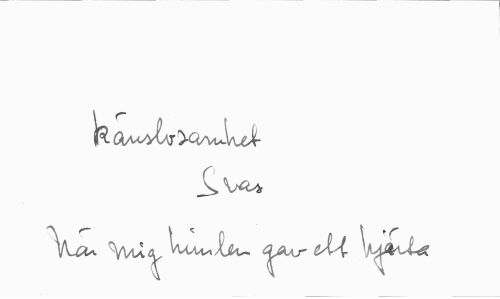 känslosamhet
Svar
När mig himlen gav ett hjärta